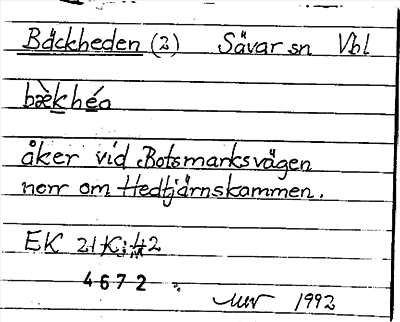 Bäckheden (2) Sävar sn Vbl
bæ̀khéo
åker vid Botsmarksvägen
norr om Hedtjärnskammen.
EK 21K:
4672
1992